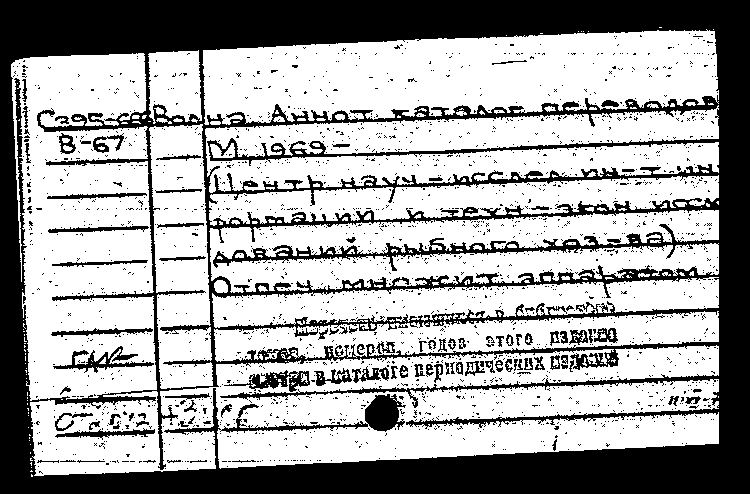 Волна. Аннот. каталог переводов
В-67
М., 1969-
(Центр. науч.-исслед. ин-т ин
формации и техн.-экон. иссле
дований рыбного хоз-ва)
Отпеч. множит. аппаратом
Перечень имеющихся в библиотеке
томов, номеров, годов этого издания
в каталоге периодических изданий